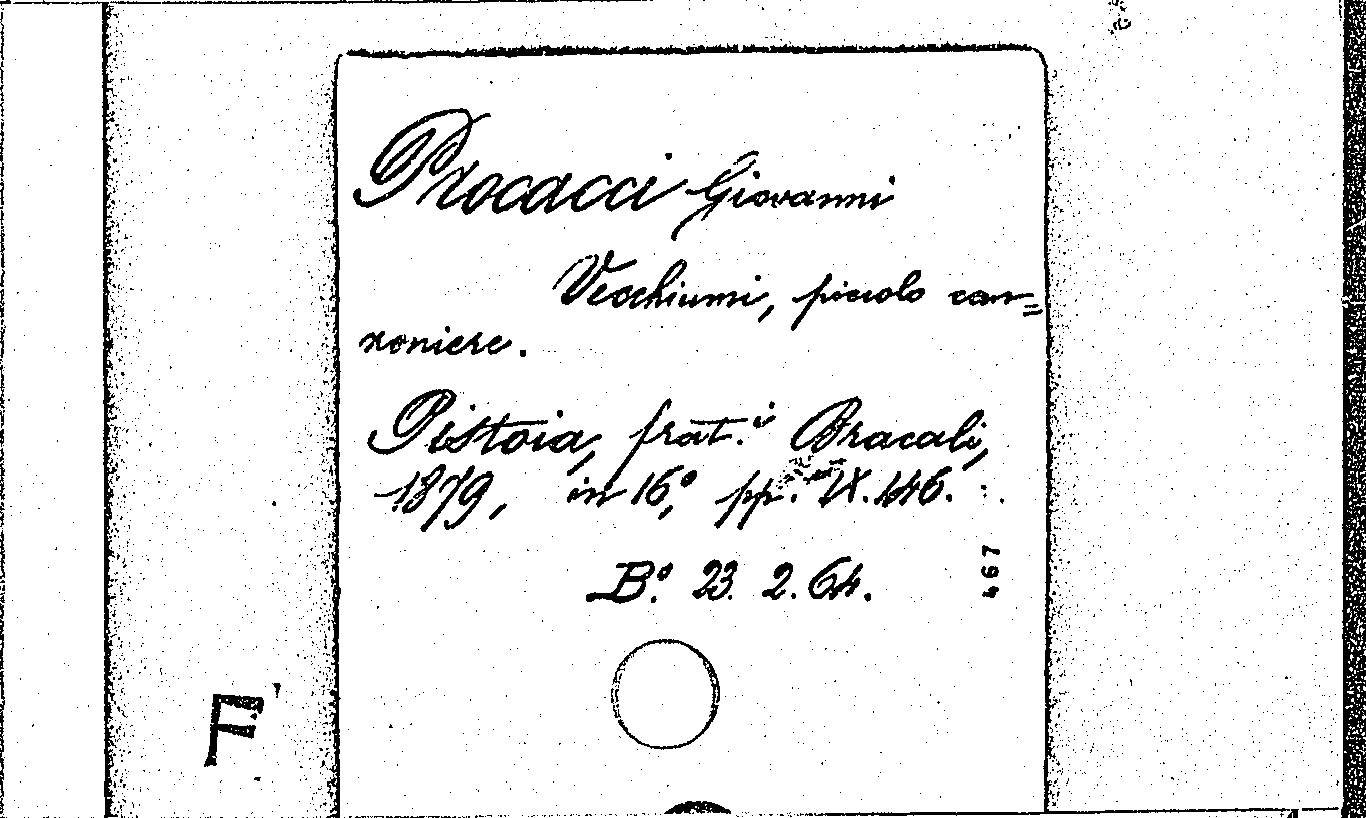 Procacci Giovanni
Vecchiumi, piccolo can=
zoniere.
Pistoia, frat.i Bracali,
1879, in 16°, pp. IX.146.
B.o 23. 2. 64.
467
F